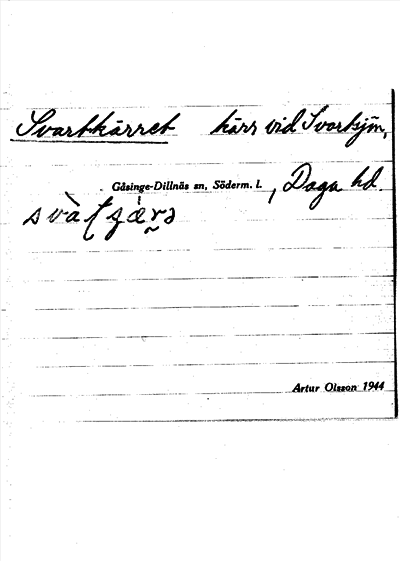 Svartkärret kärr vid Svartsjön,
Gåsinge-Dillnäs sn, Söderm. l., Daga hd.
Artur Olsson 1944